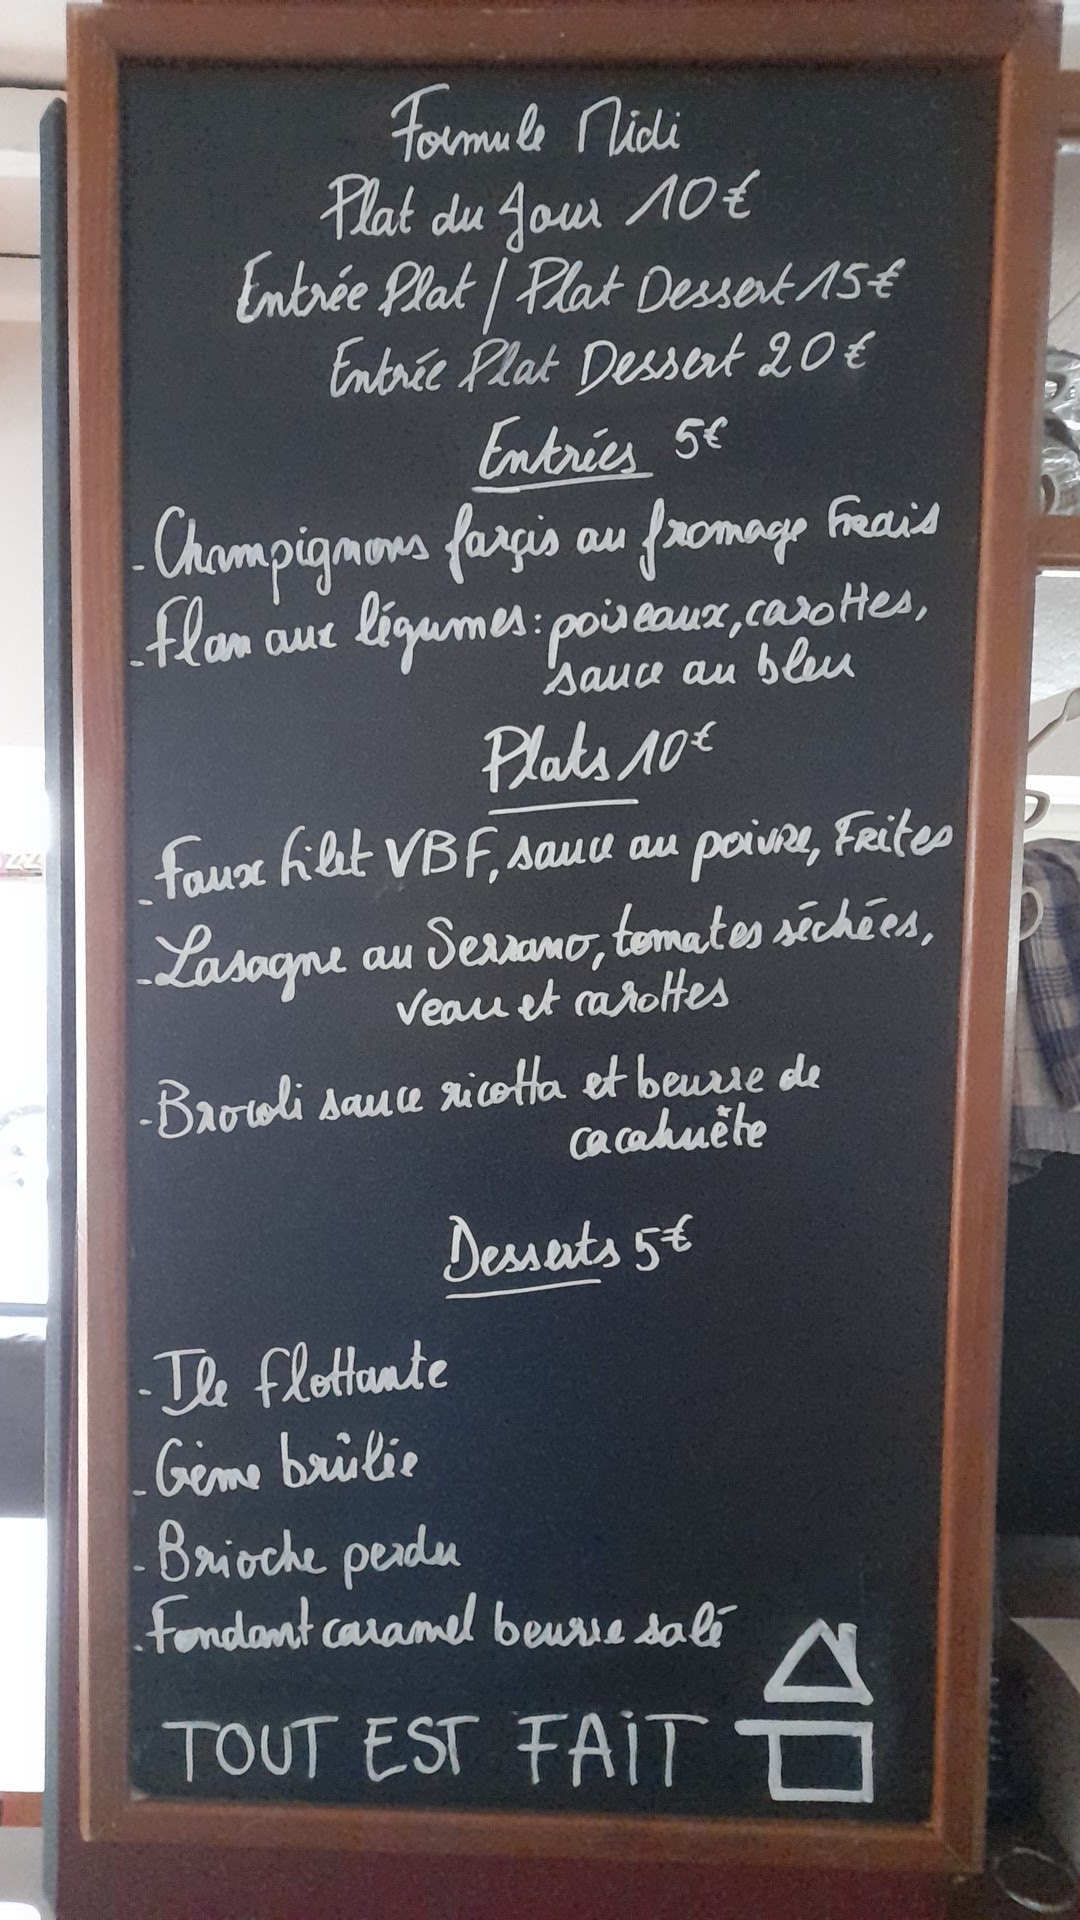 Formule Midi
Plat du Jour 10€
Entrée Plat / Plat Dessert 15€
Entrée Plat Dessert 20€
Entrées 5€
- Champignons farçis au fromage Frais
- Flan aux légumes : poireaux, carottes,
sauce au bleu
Plats 10€
- Faux filet VBF, sauce au poivre, Frites
- Lasagne au Serrano, tomates séchées,
veau et carottes
- Brocoli sauce ricotta et beurre de
cacahuète
Desserts 5€
- Ile flottante
- Crème brûlée
- Brioche perdu
- Fondant caramel beurre salé
TOUT EST FAIT